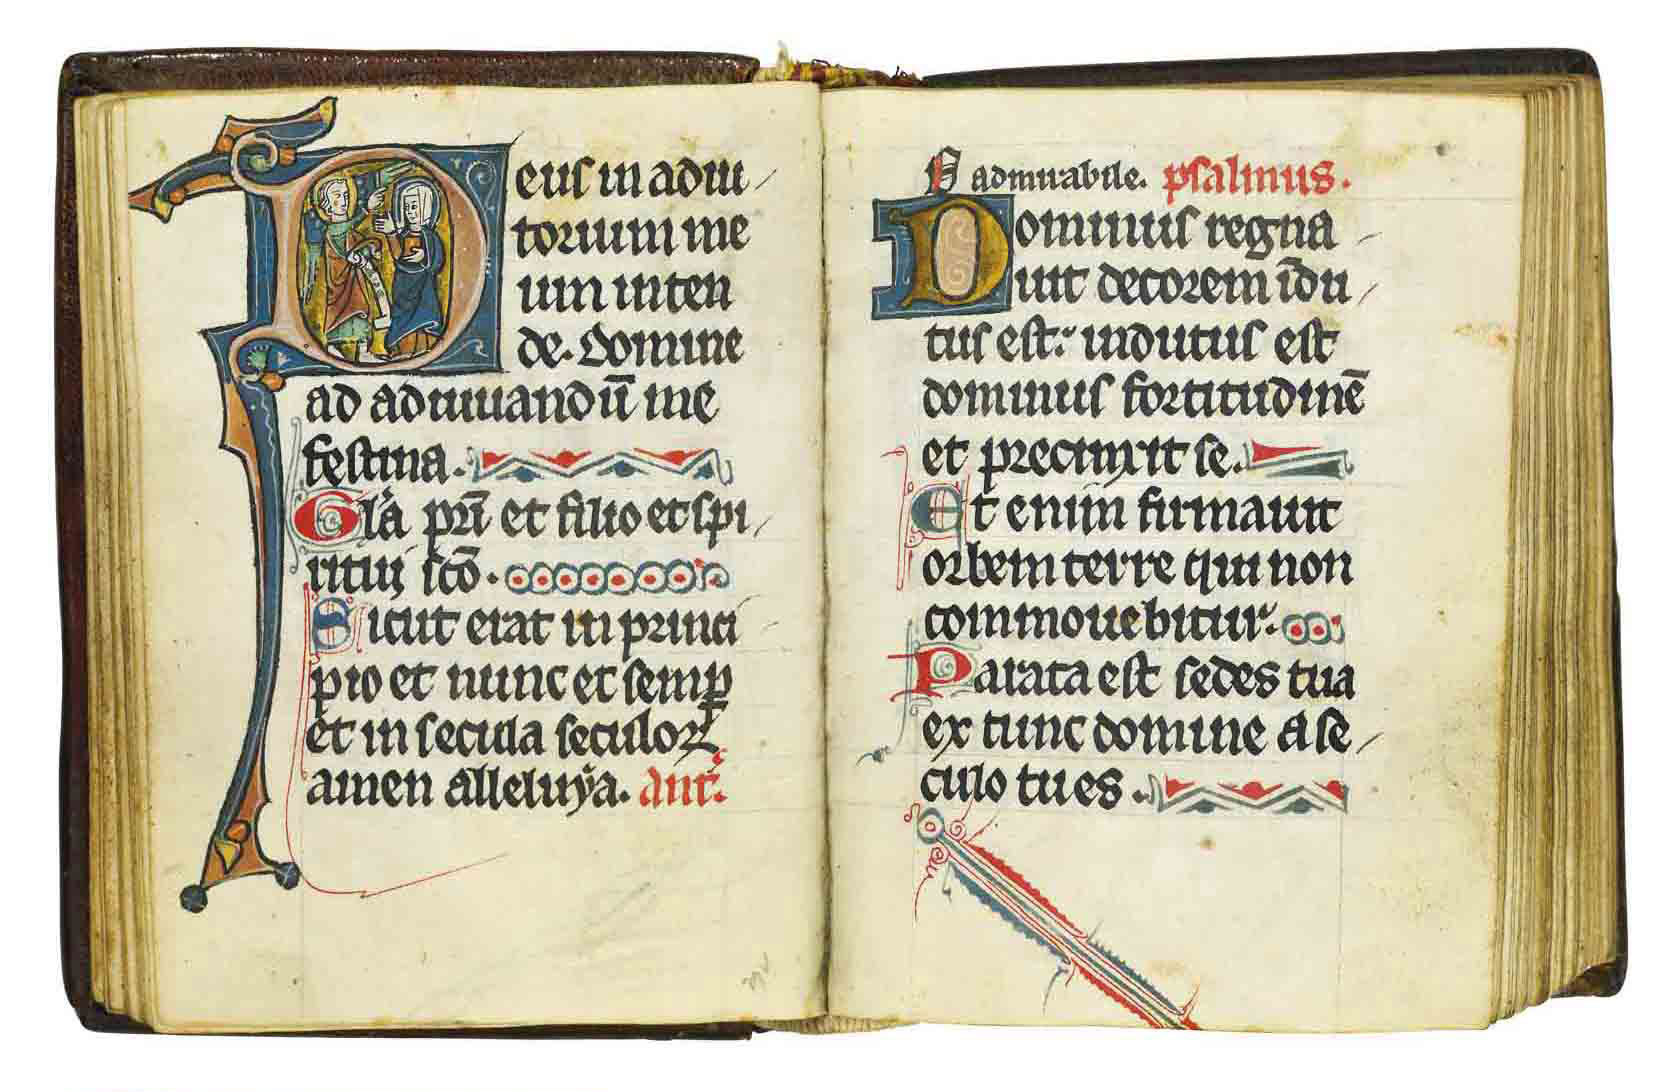 Deus in adiu
torium me
um inten
de. Domine
ad adiuuandū me
festina.
Glā pri et filio et spi
ritui sc̄o.
Sicut erat in princi
pio et nunc et semꝑ
et in secula seculoꝝ
amen alleluya. ant.
O admirabile. psalmus.
Dominus regna
uit decorem īdu
tus est: indutus est
dominus fortitudinē
et precinxit se.
Et enim firmauit
orbem terre qui non
commouebitur.
Parata est sedes tua
ex tunc domine a se
culo tu es.